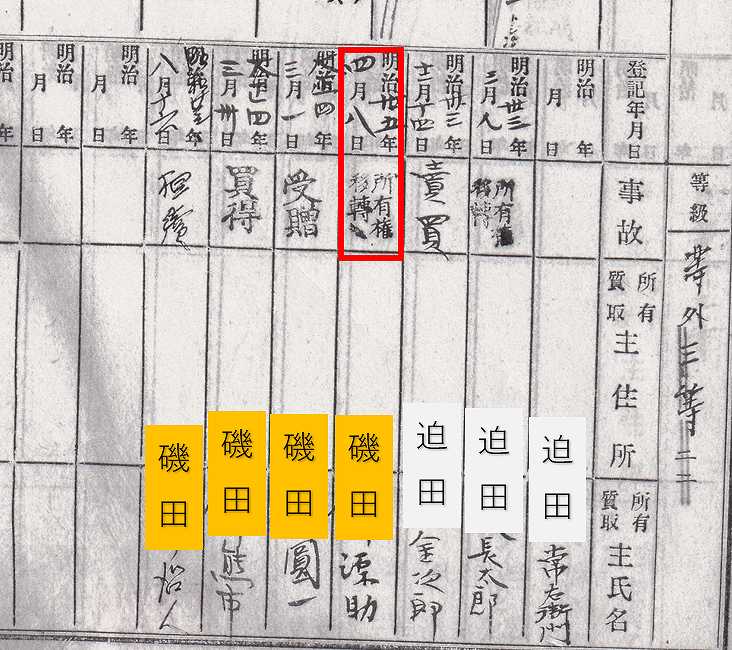 等級
等外三等
登記年月日
事故
所有
質取
主住所
所有
質取
主氏名
明治 年
月 日
迫田
常右衛門
明治卅三年
三月八日
所有権
移轉
迫田
長太郎
明治卅三年
十二月十四日
賣買
迫田
金次郎
明治卅五年
四月八日
所有権
移轉
磯田
源助
四年
三月一日
受贈
磯田
圓一
十四年
三月卅日
買得
磯田
熊市
年
八月十六日
相續
磯田
明治 年
月 日
明治 年
月 日
明治 年